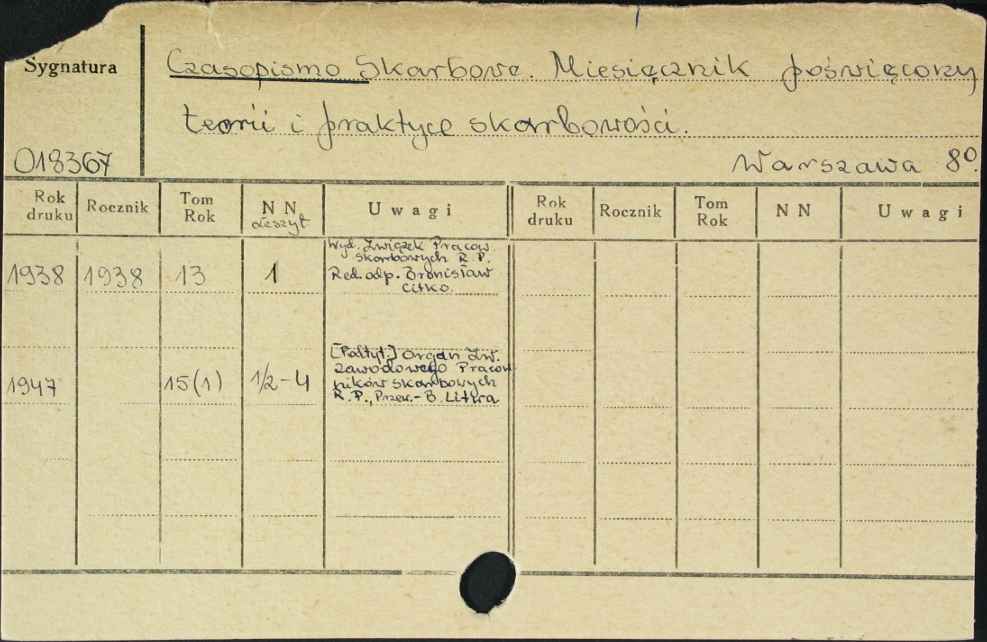 Sygnatura
Czasopismo Skarbowe. Miesięcznik poświęcony
teorii i praktyce skarbowości.
018367
Warszawa 8⁰.
Rok druku Rocznik Tom Rok NN zeszyt Uwagi Rok druku Rocznik Tom Rok NN Uwagi
Wyd. Związek Pracow.
skarbowych R. P.
1938 1938 13 1 Red. odp. Bronisław
Citko.
[Podtyt.] Organ Zw.
zawodowego Pracow
1947 15(1) 1/2-4 ników skarbowych
R. P., Przew.- B. Litwa